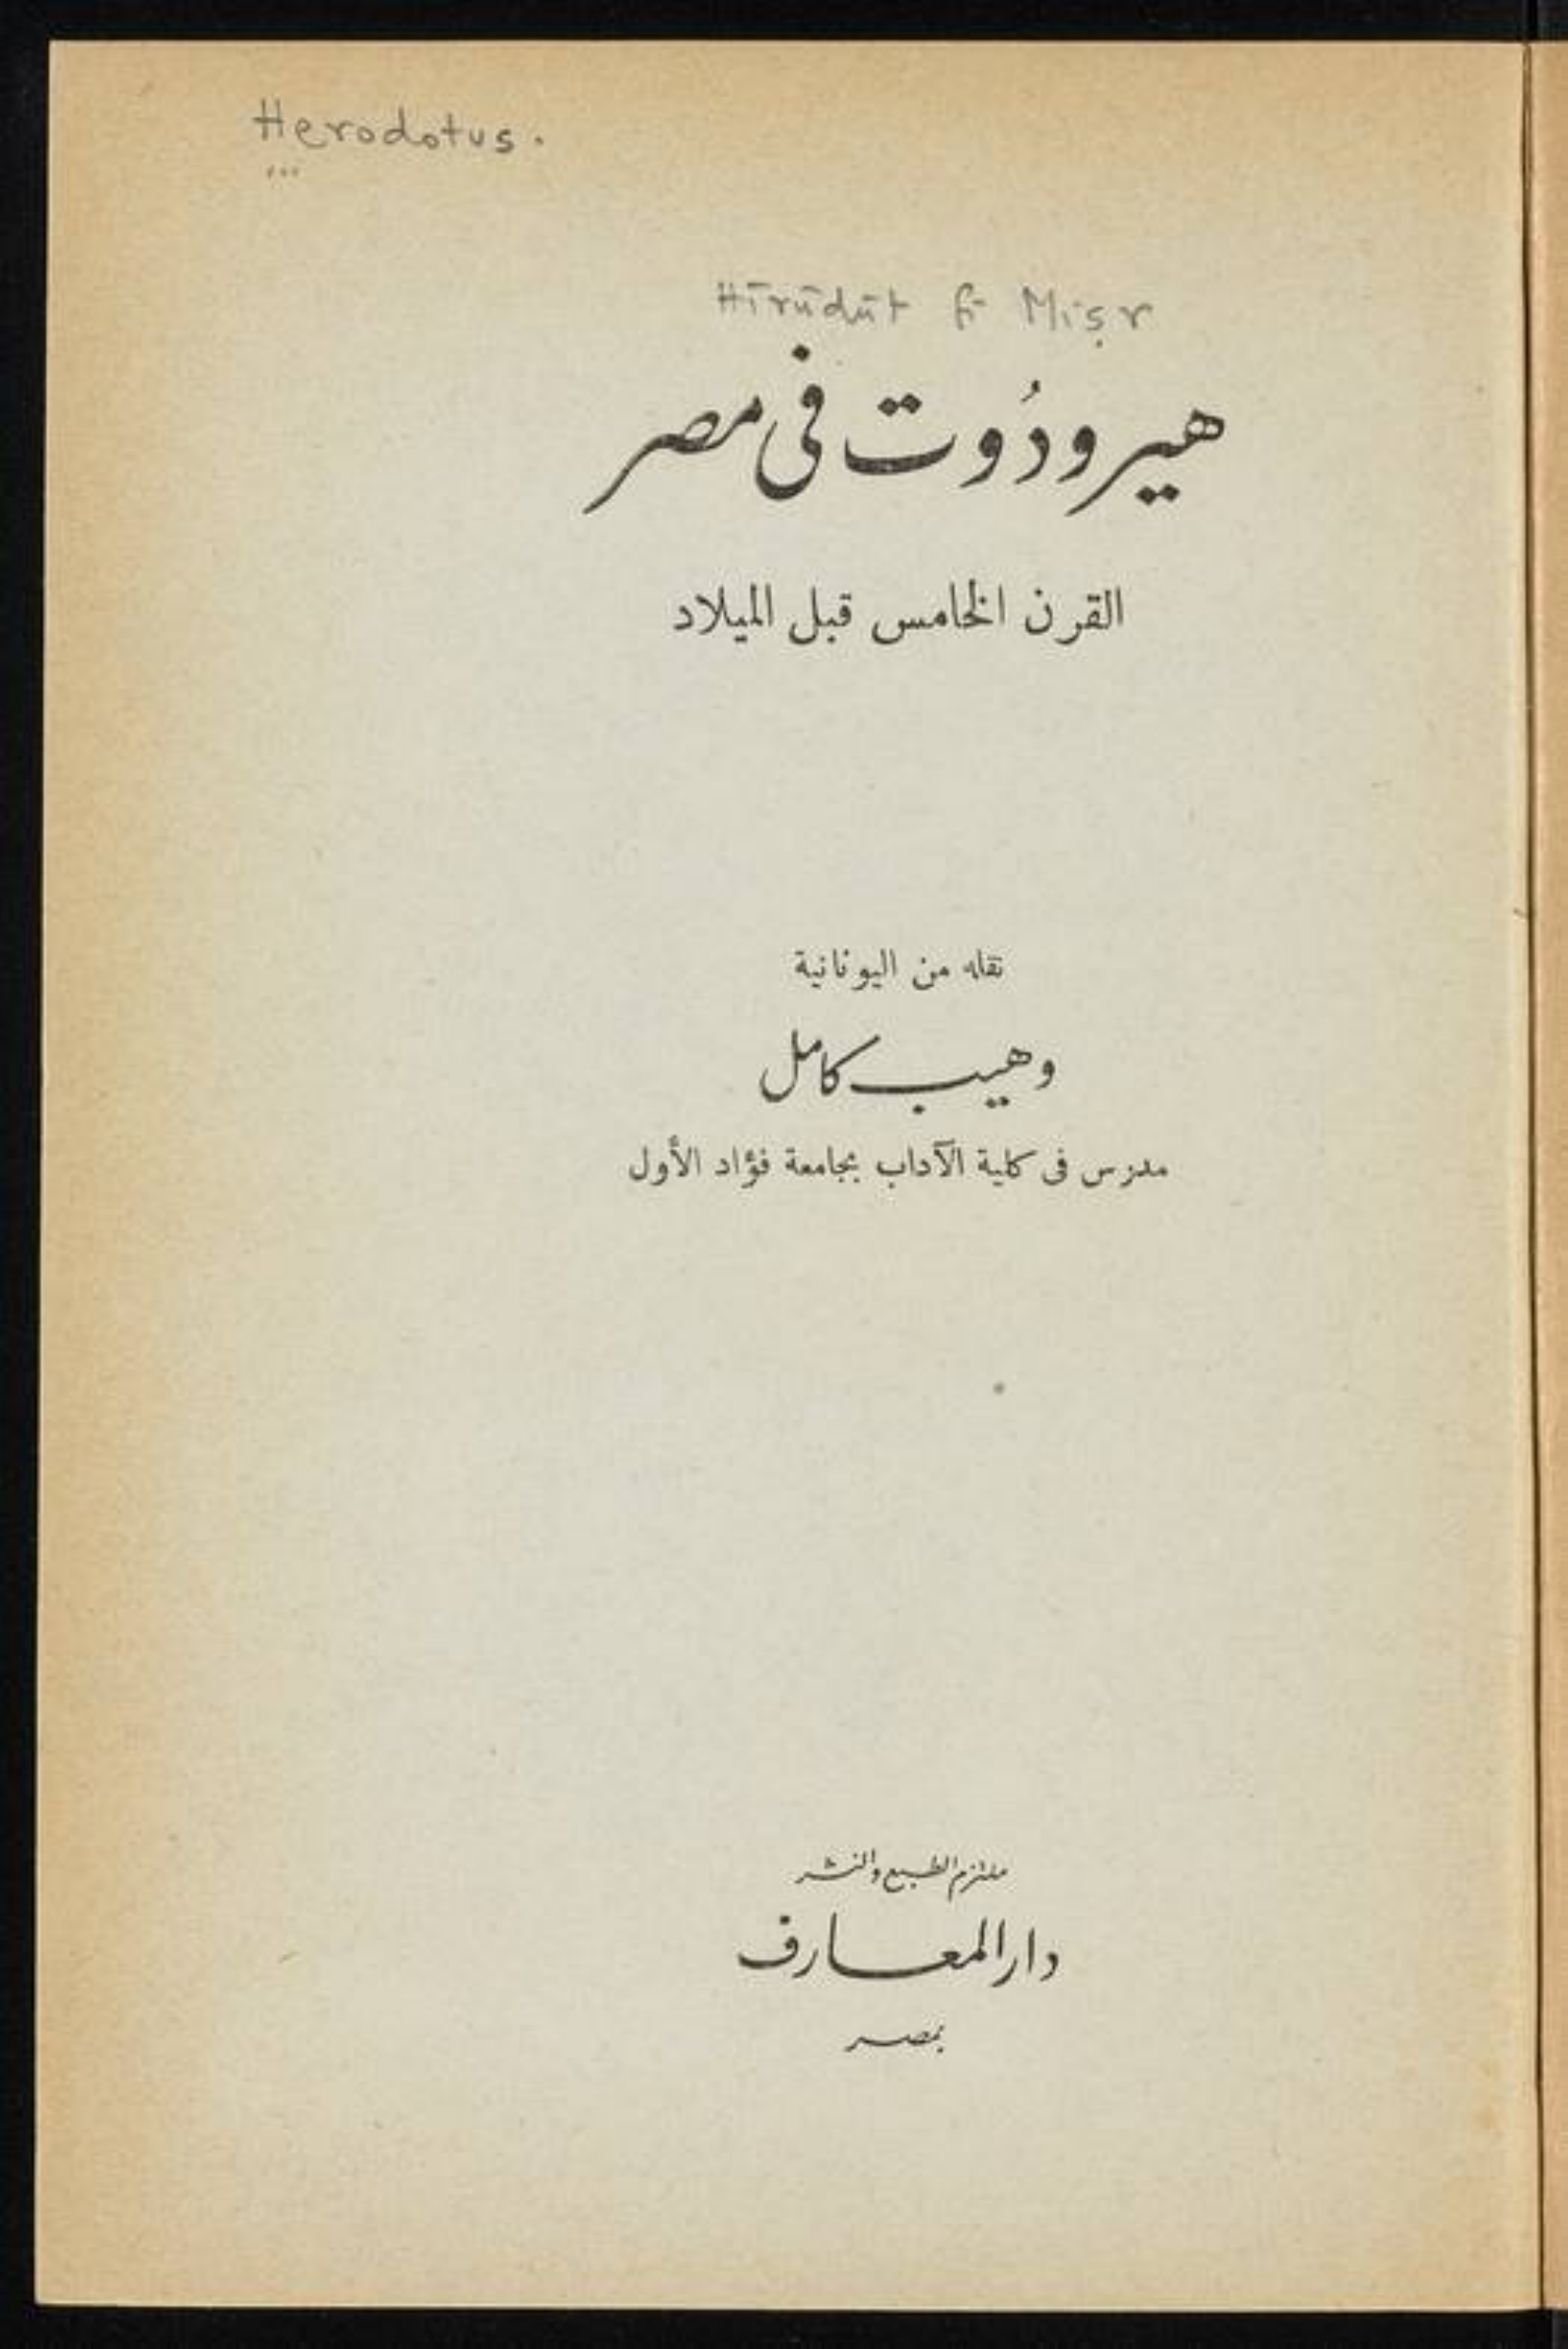 Herodotus.
Hīrūdūt fī Miṣr
هيرودُوت فى مصر
القرن الخامس قبل الميلاد
نقله من اليونانية
وهيب كامل
مدرس فى كلية الآداب بجامعة فؤاد الأول
ملتزم الطبع والنشر
دار المعارف
بمصر